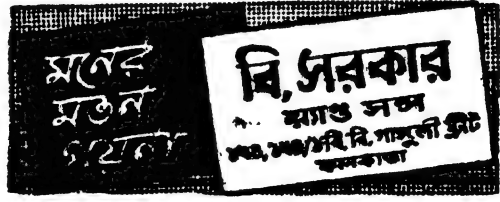 মনের
মতন
গয়না
বি, সরকার
য়্যাণ্ড সন্স
বি, বি, গাঙ্গুলী ষ্ট্রীট
কলিকাতা